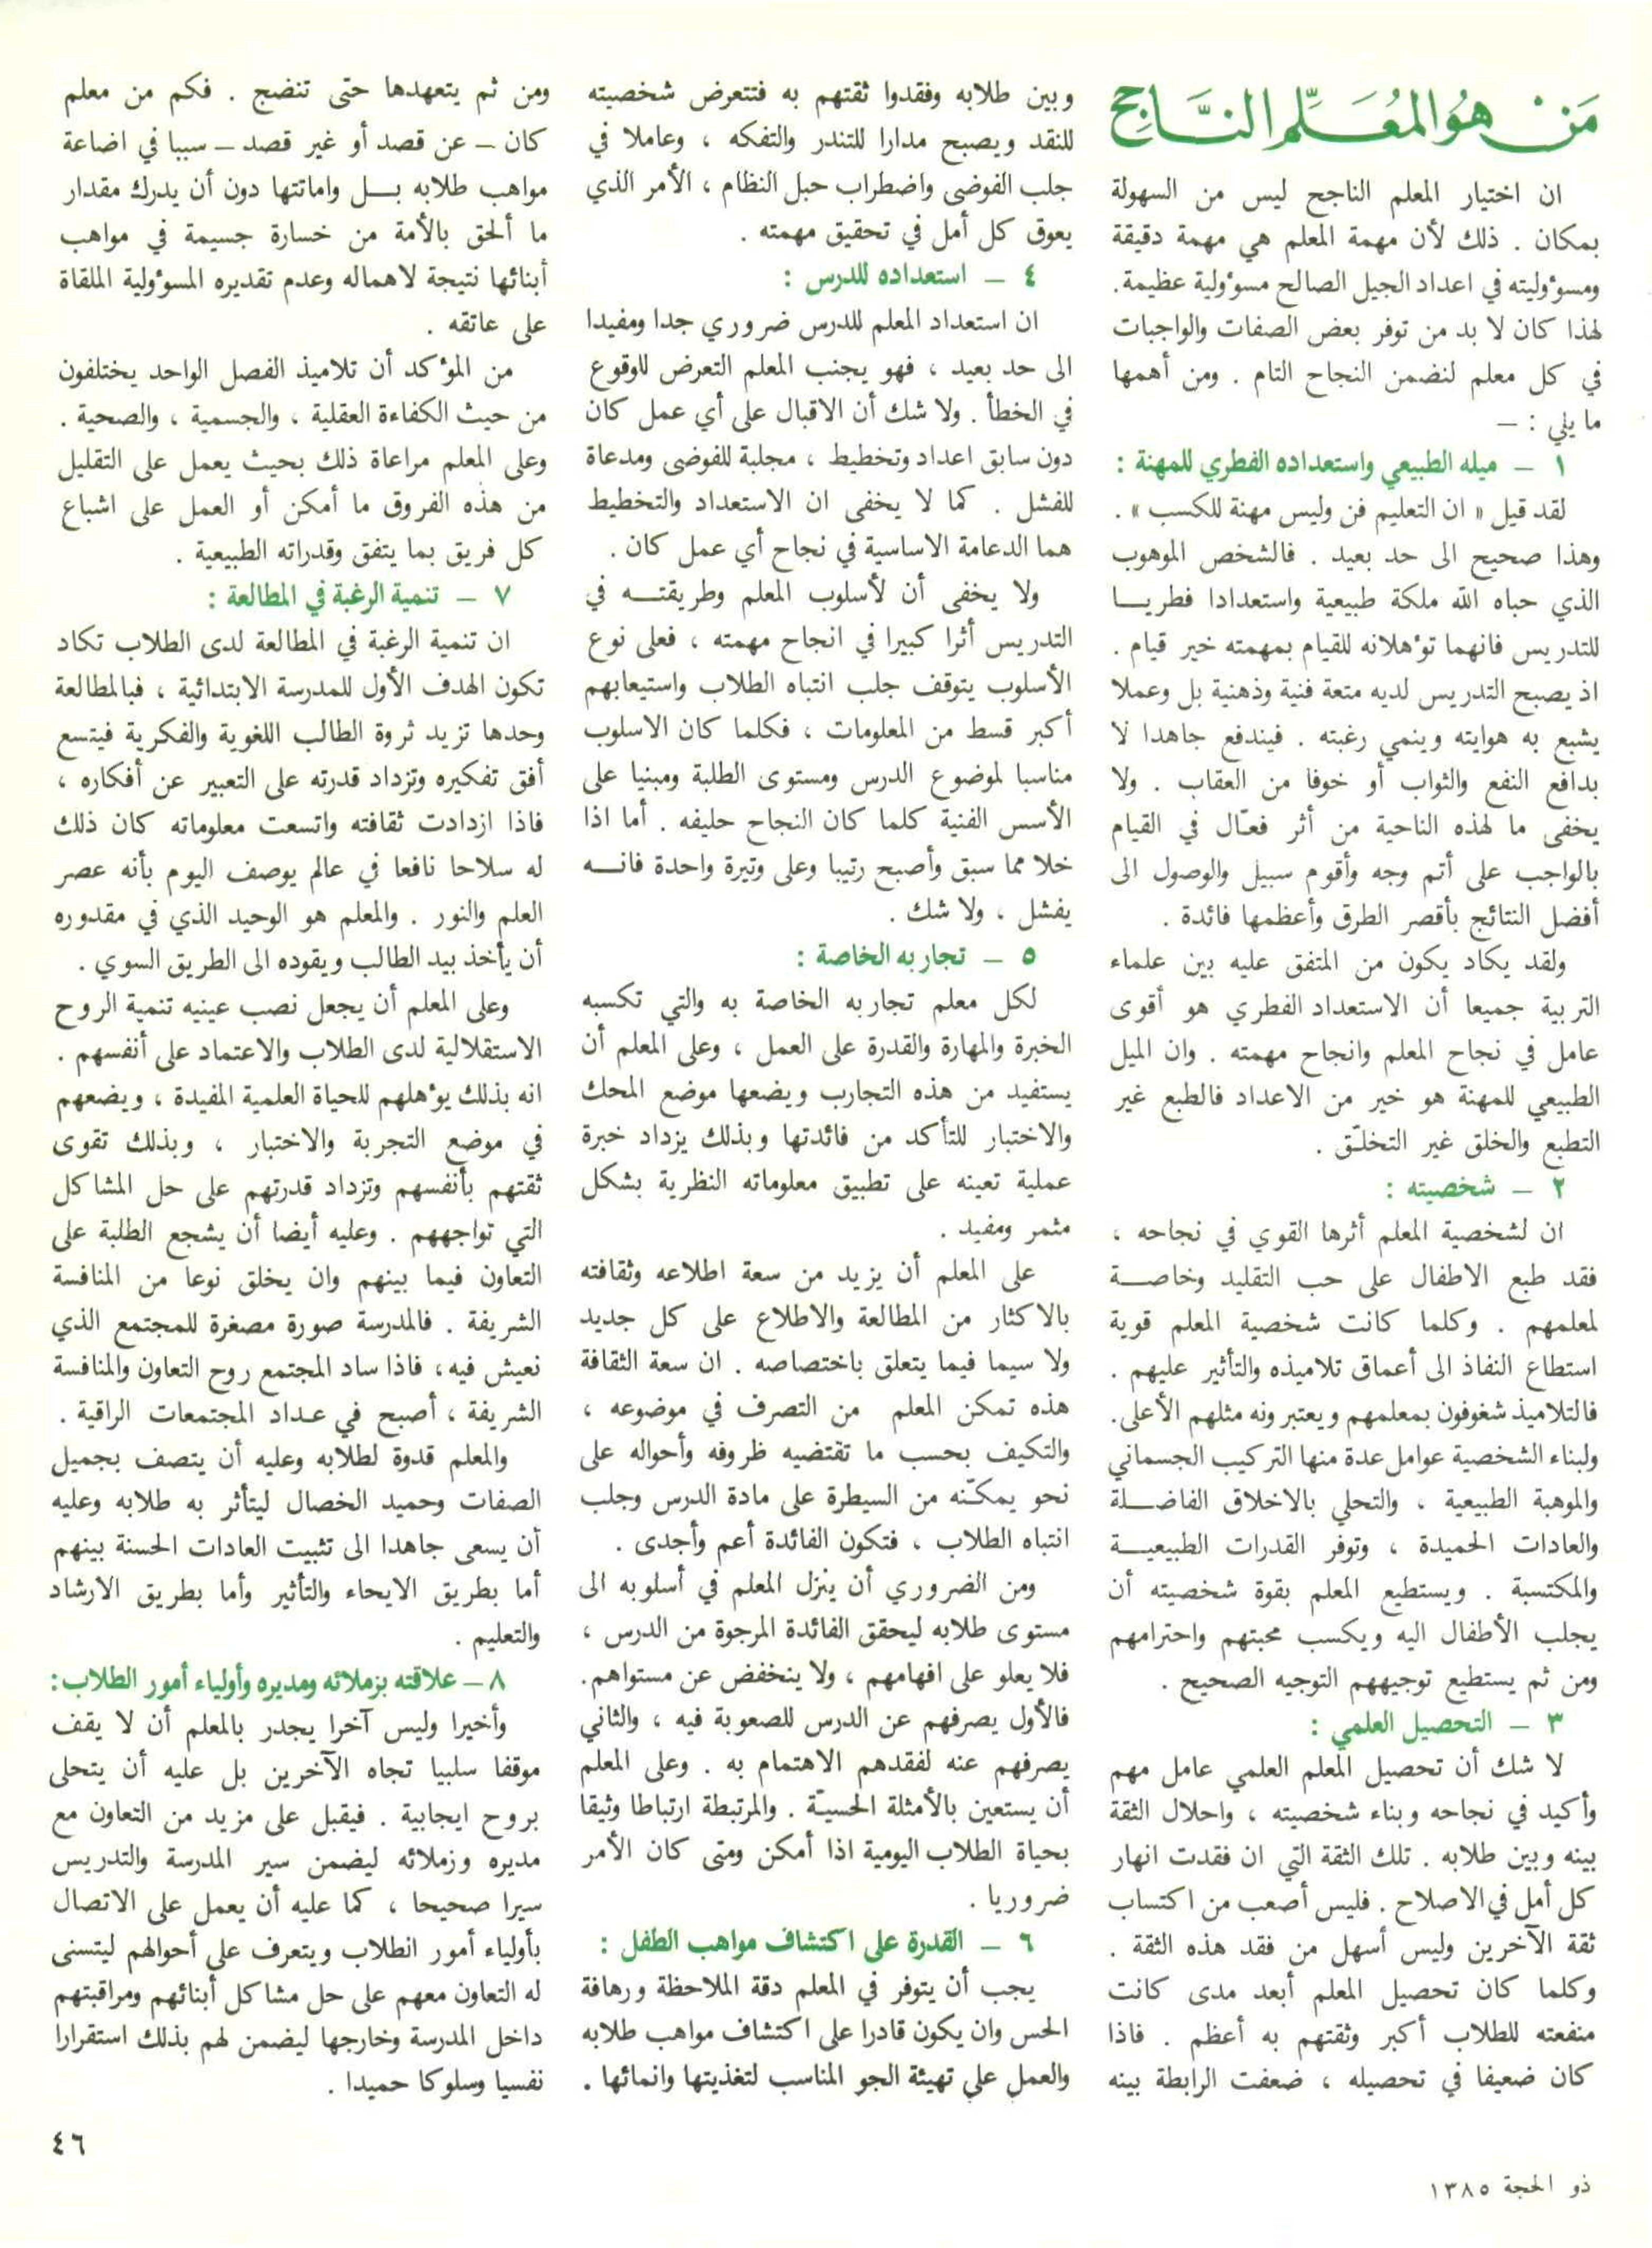 مَنْ هُوَ المُعَلِّم النَّاجِح
ان اختيار المعلم الناجح ليس من السهولة
بمكان . ذلك لأن مهمة المعلم هي مهمة دقيقة
ومسؤوليته في اعداد الجيل الصالح مسؤولية عظيمة.
لهذا كان لا بد من توفر بعض الصفات والواجبات
في كل معلم لنضمن النجاح التام . ومن أهمها
ما يلي : –
١ – ميله الطبيعي واستعداده الفطري للمهنة :
لقد قيل « ان التعليم فن وليس مهنة للكسب » .
وهذا صحيح الى حد بعيد . فالشخص الموهوب
الذي حباه الله ملكة طبيعية واستعدادا فطريـا
للتدريس فانهما تؤهلانه للقيام بمهمته خير قيام .
اذ يصبح التدريس لديه متعة فنية وذهنية بل وعملا
يشبع به هوايته وينمي رغبته . فيندفع جاهدا لا
بدافع النفع والثواب أو خوفا من العقاب . ولا
يخفى ما لهذه الناحية من أثر فعّال في القيام
بالواجب على أتم وجه وأقوم سبيل والوصول الى
أفضل النتائج بأقصر الطرق وأعظمها فائدة .
ولقد يكاد يكون من المتفق عليه بين علماء
التربية جميعا أن الاستعداد الفطري هو أقوى
عامل في نجاح المعلم وانجاح مهمته . وان الميل
الطبيعي للمهنة هو خير من الاعداد فالطبع غير
التطبع والخلق غير التخلّق .
٢ – شخصيته :
ان لشخصية المعلم أثرها القوي في نجاحه ،
فقد طبع الاطفال على حب التقليد وخاصـة
لمعلمهم . وكلما كانت شخصية المعلم قوية
استطاع النفاذ الى أعماق تلاميذه والتأثير عليهم .
فالتلاميذ شغوفون بمعلمهم ويعتبرونه مثلهم الأعلى.
ولبناء الشخصية عوامل عدة منها التركيب الجسماني
والموهبة الطبيعية ، والتحلي بالاخلاق الفاضـلة
والعادات الحميدة ، وتوفر القدرات الطبيعيـة
والمكتسبة . ويستطيع المعلم بقوة شخصيته أن
يجلب الأطفال اليه ويكسب محبتهم واحترامهم
ومن ثم يستطيع توجيههم التوجيه الصحيح .
٣ – التحصيل العلمي :
لا شك أن تحصيل المعلم العلمي عامل مهم
وأكيد في نجاحه وبناء شخصيته ، واحلال الثقة
بينه وبين طلابه . تلك الثقة التي ان فقدت انهار
كل أمل في الاصلاح . فليس أصعب من اكتساب
ثقة الآخرين وليس أسهل من فقد هذه الثقة .
وكلما كان تحصيل المعلم أبعد مدى كانت
منفعته للطلاب أكبر وثقتهم به أعظم . فاذا
كان ضعيفا في تحصيله ، ضعفت الرابطة بينه
وبين طلابه وفقدوا ثقتهم به فتتعرض شخصيته
للنقد ويصبح مدارا للتندر والتفكه ، وعاملا في
جلب الفوضى واضطراب حبل النظام ، الأمر الذي
يعوق كل أمل في تحقيق مهمته .
٤ – استعداده للدرس :
ان استعداد المعلم للدرس ضروري جدا ومفيدا
الى حد بعيد ، فهو يجنب المعلم التعرض للوقوع
في الخطأ . ولا شك أن الاقبال على أي عمل كان
دون سابق اعداد وتخطيط ، مجلبة للفوضى ومدعاة
للفشل . كما لا يخفى ان الاستعداد والتخطيط
هما الدعامة الاساسية في نجاح أي عمل كان .
ولا يخفى أن لأسلوب المعلم وطريقتـه في
التدريس أثرا كبيرا في انجاح مهمته ، فعلى نوع
الأسلوب يتوقف جلب انتباه الطلاب واستيعابهم
أكبر قسط من المعلومات ، فكلما كان الاسلوب
مناسبا لموضوع الدرس ومستوى الطلبة ومبنيا على
الأسس الفنية كلما كان النجاح حليفه . أما اذا
خلا مما سبق وأصبح رتيبا وعلى وتيرة واحدة فانـه
يفشل ، ولا شك .
٥ – تجاربه الخاصة :
لكل معلم تجاربه الخاصة به والتي تكسبه
الخبرة والمهارة والقدرة على العمل ، وعلى المعلم أن
يستفيد من هذه التجارب ويضعها موضع المحك
والاختبار للتأكد من فائدتها وبذلك يزداد خبرة
عملية تعينه على تطبيق معلوماته النظرية بشكل
مثمر ومفيد .
على المعلم أن يزيد من سعة اطلاعه وثقافته
بالاكثار من المطالعة والاطلاع على كل جديد
ولا سيما فيما يتعلق باختصاصه . ان سعة الثقافة
هذه تمكن المعلم من التصرف في موضوعه ،
والتكيف بحسب ما تقتضيه ظروفه وأحواله على
نحو يمكّنه من السيطرة على مادة الدرس وجلب
انتباه الطلاب ، فتكون الفائدة أعم وأجدى .
ومن الضروري أن ينزل المعلم في أسلوبه الى
مستوى طلابه ليحقق الفائدة المرجوة من الدرس ،
فلا يعلو على افهامهم ، ولا ينخفض عن مستواهم.
فالأول يصرفهم عن الدرس للصعوبة فيه ، والثاني
يصرفهم عنه لفقدهم الاهتمام به . وعلى المعلم
أن يستعين بالأمثلة الحسيّة . والمرتبطة ارتباطا وثيقا
بحياة الطلاب اليومية اذا أمكن ومتى كان الأمر
ضروريا .
٦ – القدرة على اكتشاف مواهب الطفل :
يجب أن يتوفر في المعلم دقة الملاحظة ورهافة
الحس وان يكون قادرا على اكتشاف مواهب طلابه
والعمل على تهيئة الجو المناسب لتغذيتها وانمائها .
ومن ثم يتعهدها حتى تنضج . فكم من معلم
كان – عن قصد أو غير قصد – سببا في اضاعة
مواهب طلابه بـل واماتتها دون أن يدرك مقدار
ما ألحق بالأمة من خسارة جسيمة في مواهب
أبنائها نتيجة لاهماله وعدم تقديره المسؤولية الملقاة
على عاتقه .
من المؤكد أن تلاميذ الفصل الواحد يختلفون
من حيث الكفاءة العقلية ، والجسمية ، والصحية .
وعلى المعلم مراعاة ذلك بحيث يعمل على التقليل
من هذه الفروق ما أمكن أو العمل على اشباع
كل فريق بما يتفق وقدراته الطبيعية .
٧ – تنمية الرغبة في المطالعة :
ان تنمية الرغبة في المطالعة لدى الطلاب تكاد
تكون الهدف الأول للمدرسة الابتدائية ، فبالمطالعة
وحدها تزيد ثروة الطالب اللغوية والفكرية فيتسع
أفق تفكيره وتزداد قدرته على التعبير عن أفكاره ،
فاذا ازدادت ثقافته واتسعت معلوماته كان ذلك
له سلاحا نافعا في عالم يوصف اليوم بأنه عصر
العلم والنور . والمعلم هو الوحيد الذي في مقدوره
أن يأخذ بيد الطالب ويقوده الى الطريق السوي .
وعلى المعلم أن يجعل نصب عينيه تنمية الروح
الاستقلالية لدى الطلاب والاعتماد على أنفسهم .
انه بذلك يؤهلهم للحياة العلمية المفيدة ، ويضعهم
في موضع التجربة والاختبار ، وبذلك تقوى
ثقتهم بأنفسهم وتزداد قدرتهم على حل المشاكل
التي تواجههم . وعليه أيضا أن يشجع الطلبة على
التعاون فيما بينهم وان يخلق نوعا من المنافسة
الشريفة . فالمدرسة صورة مصغرة للمجتمع الذي
نعيش فيه، فاذا ساد المجتمع روح التعاون والمنافسة
الشريفة ، أصبح في عداد المجتمعات الراقية .
والمعلم قدوة لطلابه وعليه أن يتصف بجميل
الصفات وحميد الخصال ليتأثر به طلابه وعليه
أن يسعى جاهدا الى تثبيت العادات الحسنة بينهم
أما بطريق الايحاء والتأثير وأما بطريق الارشاد
والتعليم .
٨ – علاقته بزملائه ومديره وأولياء أمور الطلاب:
وأخيرا وليس آخرا يجدر بالمعلم أن لا يقف
موقفا سلبيا تجاه الآخرين بل عليه أن يتحلى
بروح ايجابية . فيقبل على مزيد من التعاون مع
مديره وزملائه ليضمن سير المدرسة والتدريس
سيرا صحيحا ، كما عليه أن يعمل على الاتصال
بأولياء أمور الطلاب ويتعرف على أحوالهم ليتسنى
له التعاون معهم على حل مشاكل أبنائهم ومراقبتهم
داخل المدرسة وخارجها ليضمن لهم بذلك استقرارا
نفسيا وسلوكا حميدا .
٤٦
ذو الحجة ١٣٨٥